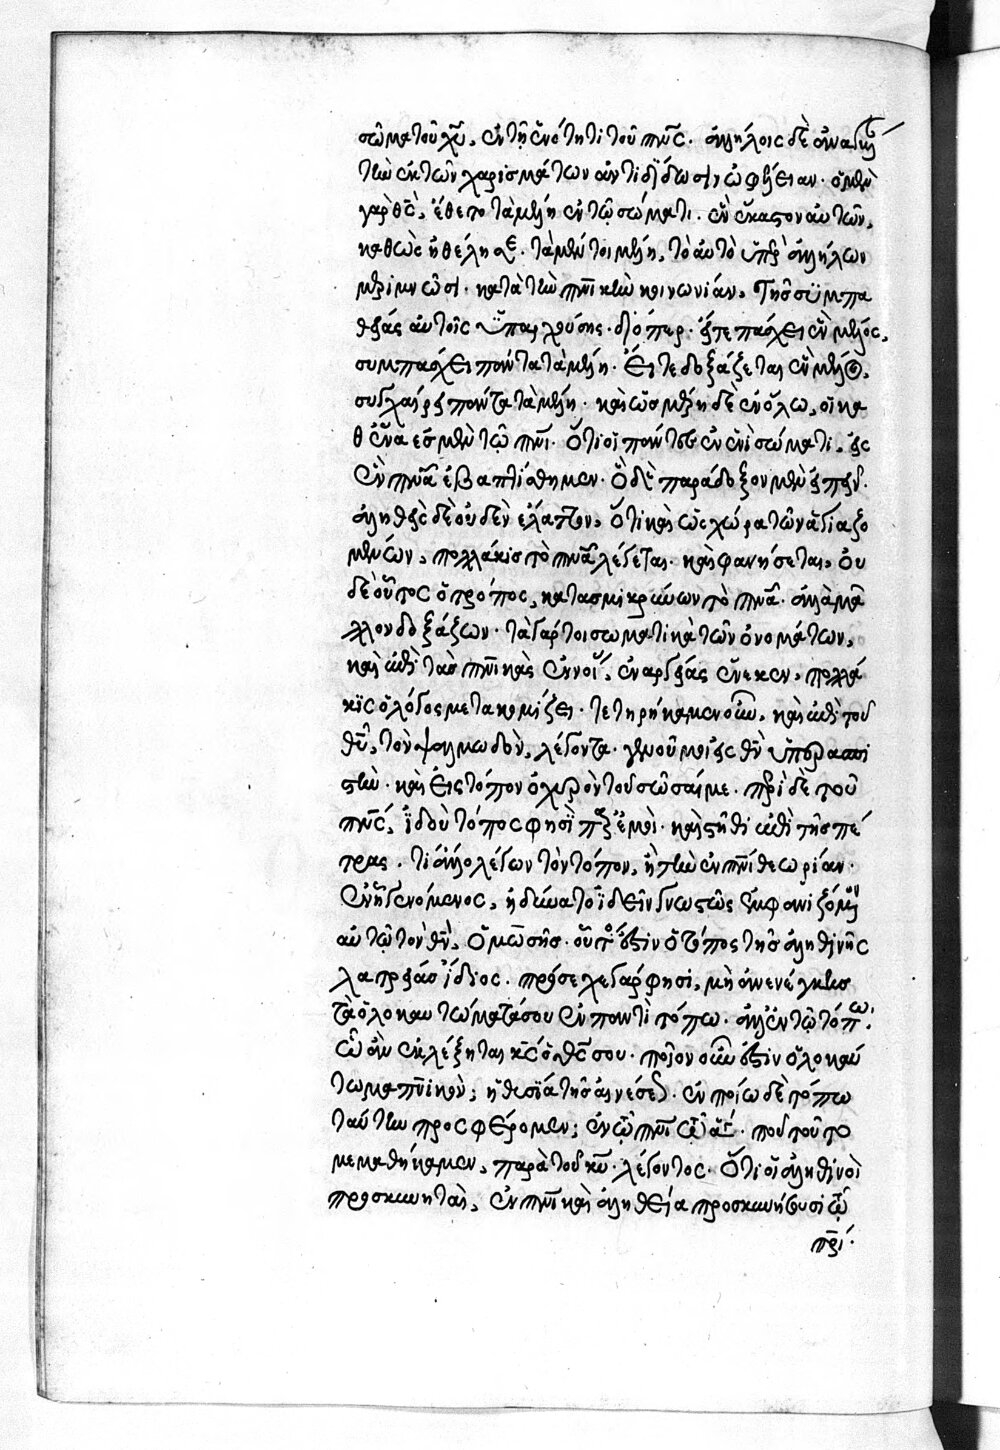 σώματοῦ χῦ, ἐν τῇ ἑνότητι τοῦ πνς. ἀλλήλοις δὲ ἀναγκαί
τὴν ἐκ τῶν χαρισμάτων ἀντιδιδωσιν ὠφέλειαν. ὁ μὲν
γὰρ θς, ἔθετο τὰ μέλη ἐν τῷ σώματι. ἓν ἕκαστον αὐτῶν,
καθὼς ἠθέλησε. τὰ μέν τοι μέλη, τὸ αὐτὸ ὑπὲρ ἀλλήλων
μεριμνῶσι. κατὰ τὴν πνικὴν κοινωνίαν. τῆς συμπα
θείας αὐτοῖς ὑπαρχούσης. διόπερ. εἴτε πάσχει ἓν μέλος,
συμπάσχει πάντα τὰ μέλη. εἴτε δοξάζεται ἓν μέλος,
συγχαίρει πάντα τὰ μέλη. καὶ ὡς μέρη δὲ ἐν ὅλω, οἱ κα
θ ἕνα ἐσμὲν τῷ πνι. ὅτι οἱ πάντες ἐν ἑνὶ σώματι, εἰς
ἓν πνα ἐβαπτίσθημεν. ὃ δὲ παράδοξον μὲν εἰπεῖν.
ἀληθὲς δὲ οὐδὲν ἔλαττον, ὅτι καὶ ὡς χώρα τῶν ἁγιαζο
μένων, πολλάκις τὸ πνα λέγεται. καὶ φανήσεται, οὐ
δὲ οὗτος ὁ τρόπος, κατασμικρύνων τὸ πνα. ἀλλὰ μᾶ
λλον δοξάζων. τὰ γάρ τοι σωματικὰ τῶν ὀνομάτων,
καὶ ἐπὶ τὰς πνικὰς ἐννοί, ἐναργείας ἕνεκεν, πολλά
κις ὁ λόγος μετακομίζει. τετηρήκαμεν οὖν, καὶ ἐπὶ τοῦ
θῦ, τὸν ψαλμωδὸν, λέγοντα. γενοῦ μοι εἰς θν ὑπερασπι
στὴν. καὶ εἰς τόπον ὀχυρὸν τοῦ σῶσαί με. περὶ δὲ τοῦ
πνς, ἰδοὺ τόπος φησὶ παρ ἐμοὶ. καὶ στῆθι ἐπὶ τῆς πέ
τρας. τί ἄλλο λέγων τὸν τόπον, ἢ τὴν ἐν πνι θεωρίαν.
ἐν ᾗ γενόμενος, ἠδύνατο ἰδεῖν γνωστῶς ἐμφανιζόμεν
αὐτῷ τὸν θν, ὁ μωσῆς. οὗτός ἐστιν ὁ τόπος τῆς ἀληθινῆς
λατρείας ἴδιος. πρόσεχε γάρ φησι, μὴ ἀνενέγκῃς
τὰ ὁλοκαυτώματά σου ἐν παντὶ τόπω. ἀλλ ἐν τῷ τόπω.
ᾧ ἂν ἐκλέξηται κς ὁ θς σου. ποῖον οὖν ἐστὶν ὁλοκαύ
τωμα πνικὸν; ἡ θυσία τῆς αἰνέσεως. ἐν ποίω δὲ τόπω
ταύτην προσφέρομεν; ἐν τῷ πνι τῷ ἁγί. ποῦ τοῦτο
μεμαθήκαμεν, παρὰ τοῦ κυ. λέγοντος. ὅτι οἱ ἀληθινοὶ
προσκυνηταὶ, ἐν πνι καὶ ἀληθεία προσκυνήσουσι τῷ
πρί.